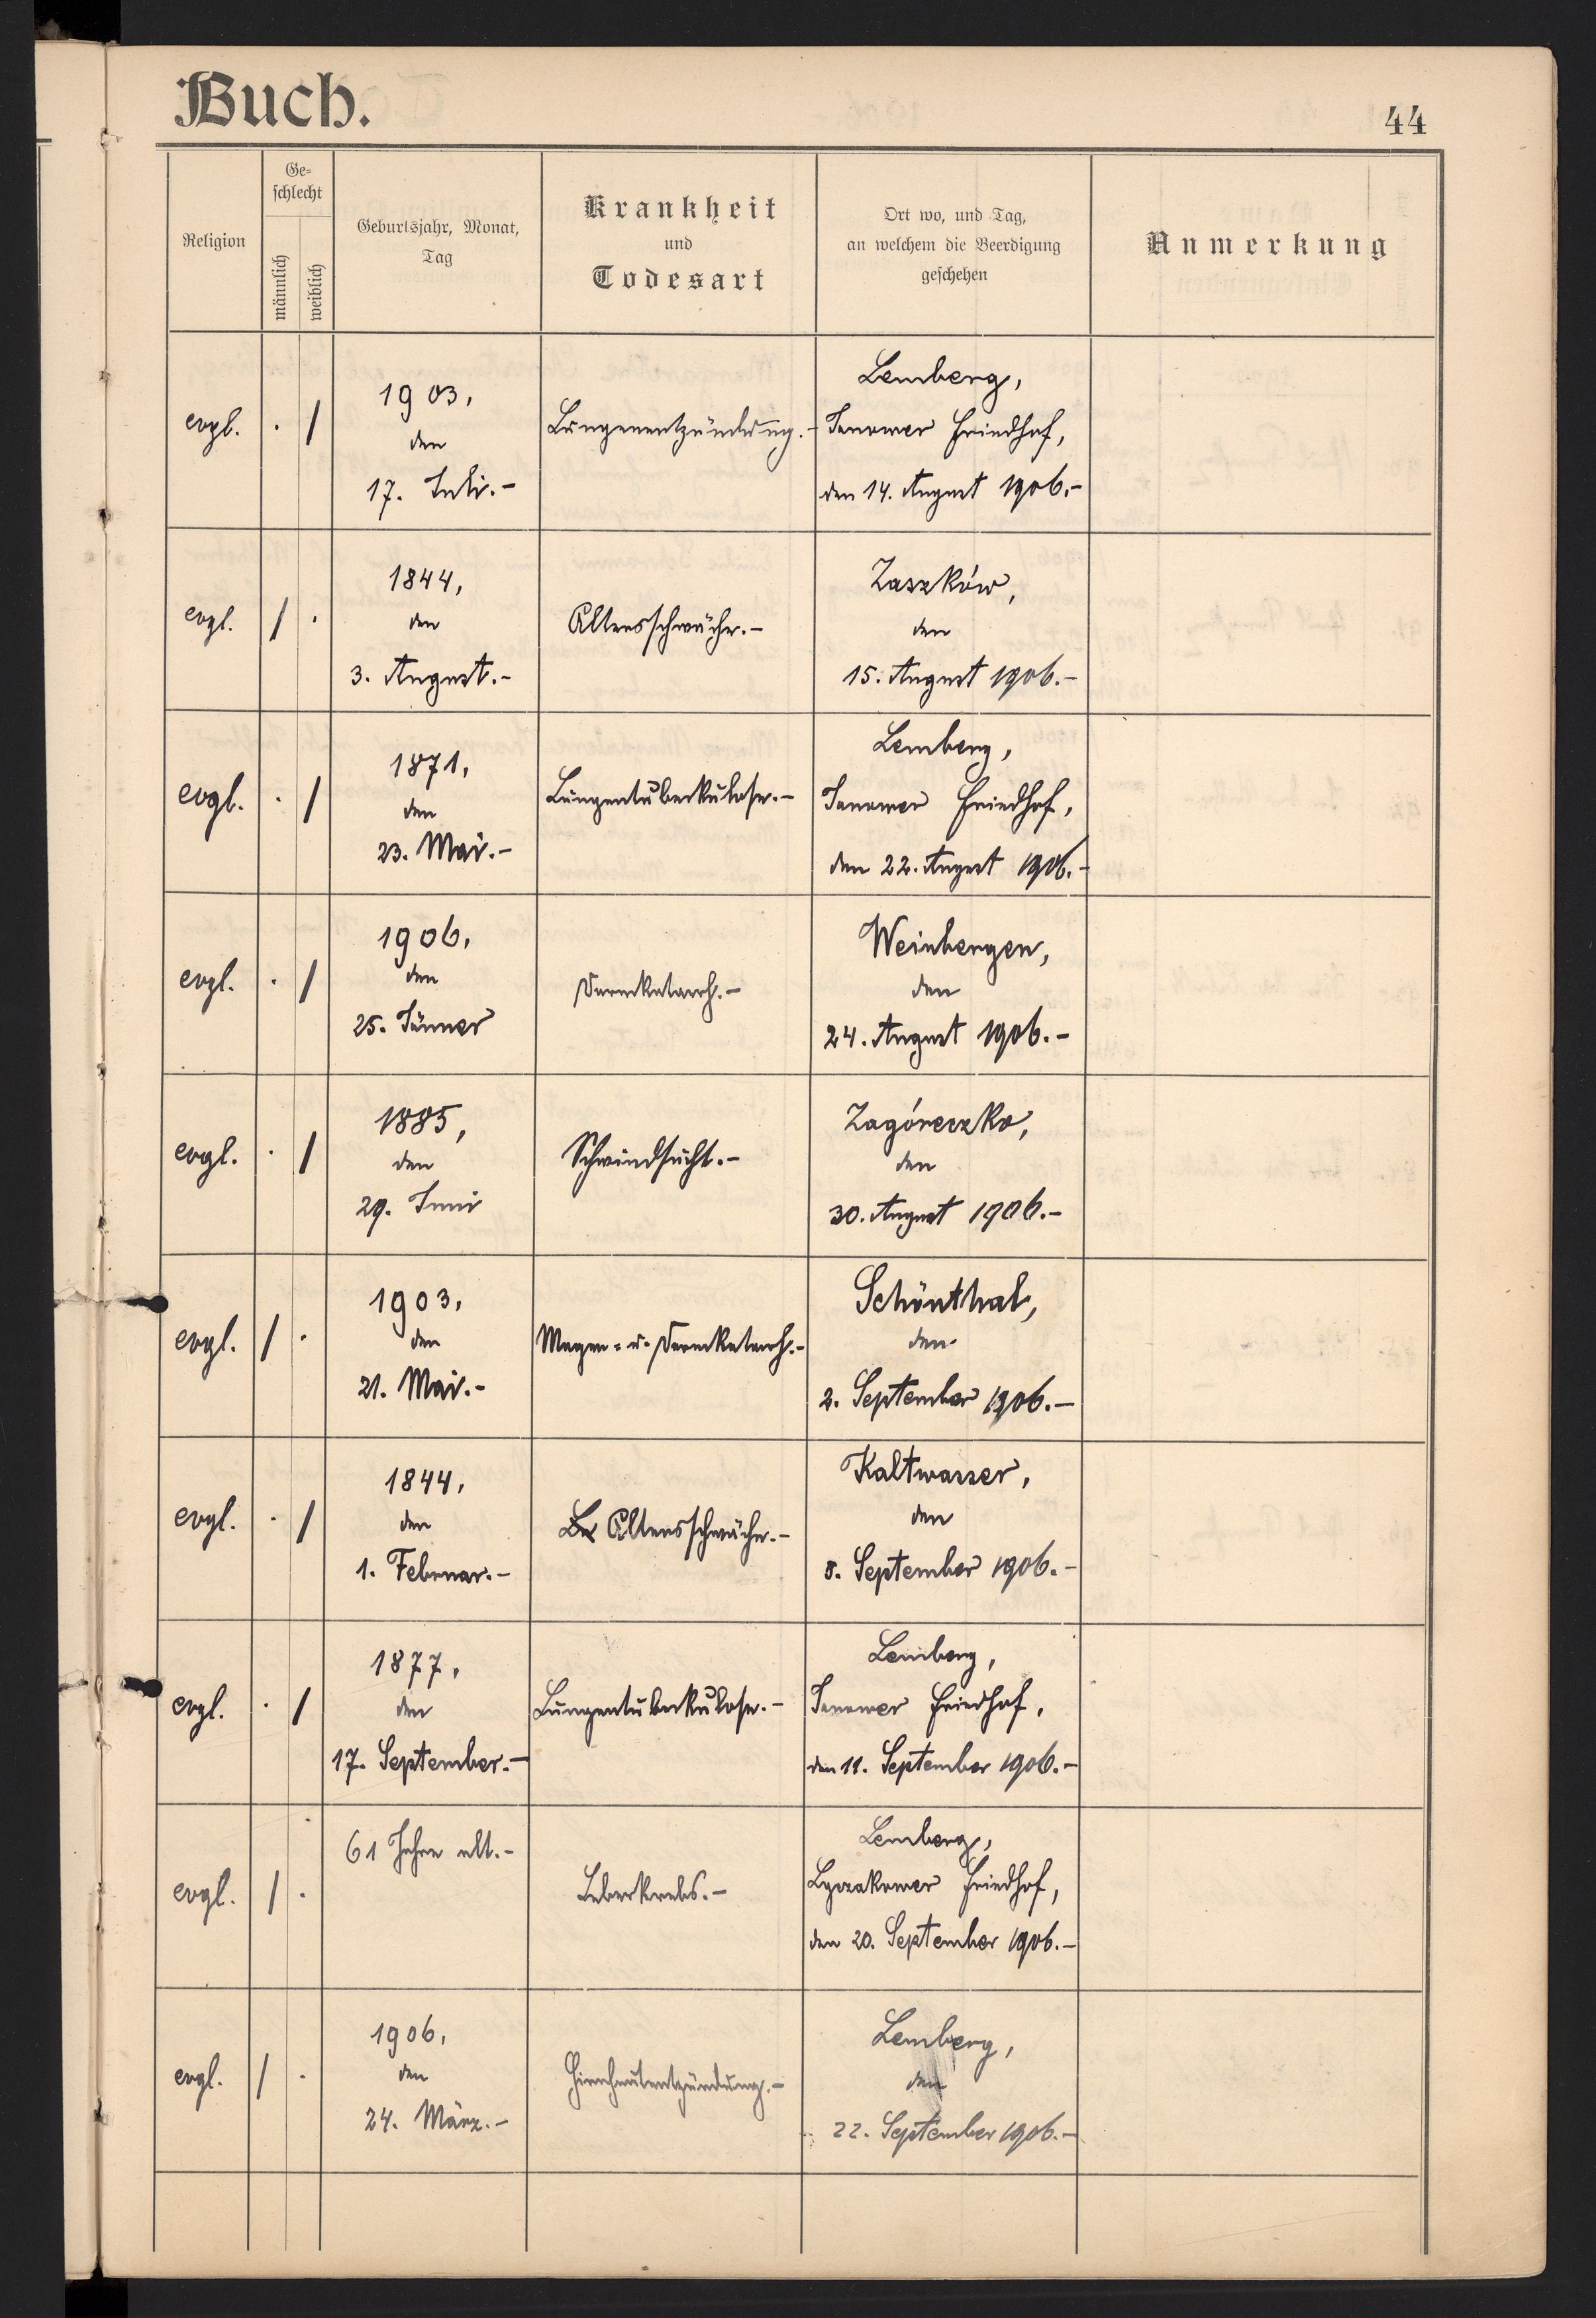 Buch.
44
Religion
Ge-
schlecht
männlich
weiblich
Geburtsjahr, Monat,
Tag
Krankheit
und
Todesart
Ort wo, und Tag,
an welchem die Beerdigung
geschehen
Anmerkung
evgl. . / 1903,
den
17. Juli.-
Lungenentzündung.-
Lemberg,
Janower Friedhof,
den 14. August 1906.-
evgl. / . 1844,
den
3. August.-
Altersschwäche.-
Zaszków,
den
15. August 1906.-
evgl. . / 1871,
den
23. Mai.-
Lungentuberkulose.-
Lemberg,
Janower Friedhof,
den 22. August 1906.-
evgl. . / 1906,
den
25. Jänner
Darmkatarrh.-
Weinbergen,
den
24. August 1906.-
evgl. . / 1885,
den
29. Juni
Schwindsucht.-
Zagóreczko,
den
30. August 1906.-
evgl. / . 1903,
den
21. Mai.-
Magen- u. Darmkatarrh.-
Schönthal,
den
2. September 1906.-
evgl. . / 1844,
den
1. Februar.-
Altersschwäche.-
Kaltwasser,
den
8. September 1906.-
evgl. . / 1877,
den
17. September.-
Lungentuberkulose.-
Lemberg,
Janower Friedhof,
den 11. September 1906.-
evgl. / . 61 Jahre alt.-
Leberkrebs.-
Lemberg,
Lyczakower Friedhof,
den 20. September 1906.-
evgl. / . 1906,
den
24. März.-
Hirnhautentzündung.-
Lemberg,
den
22. September 1906.-